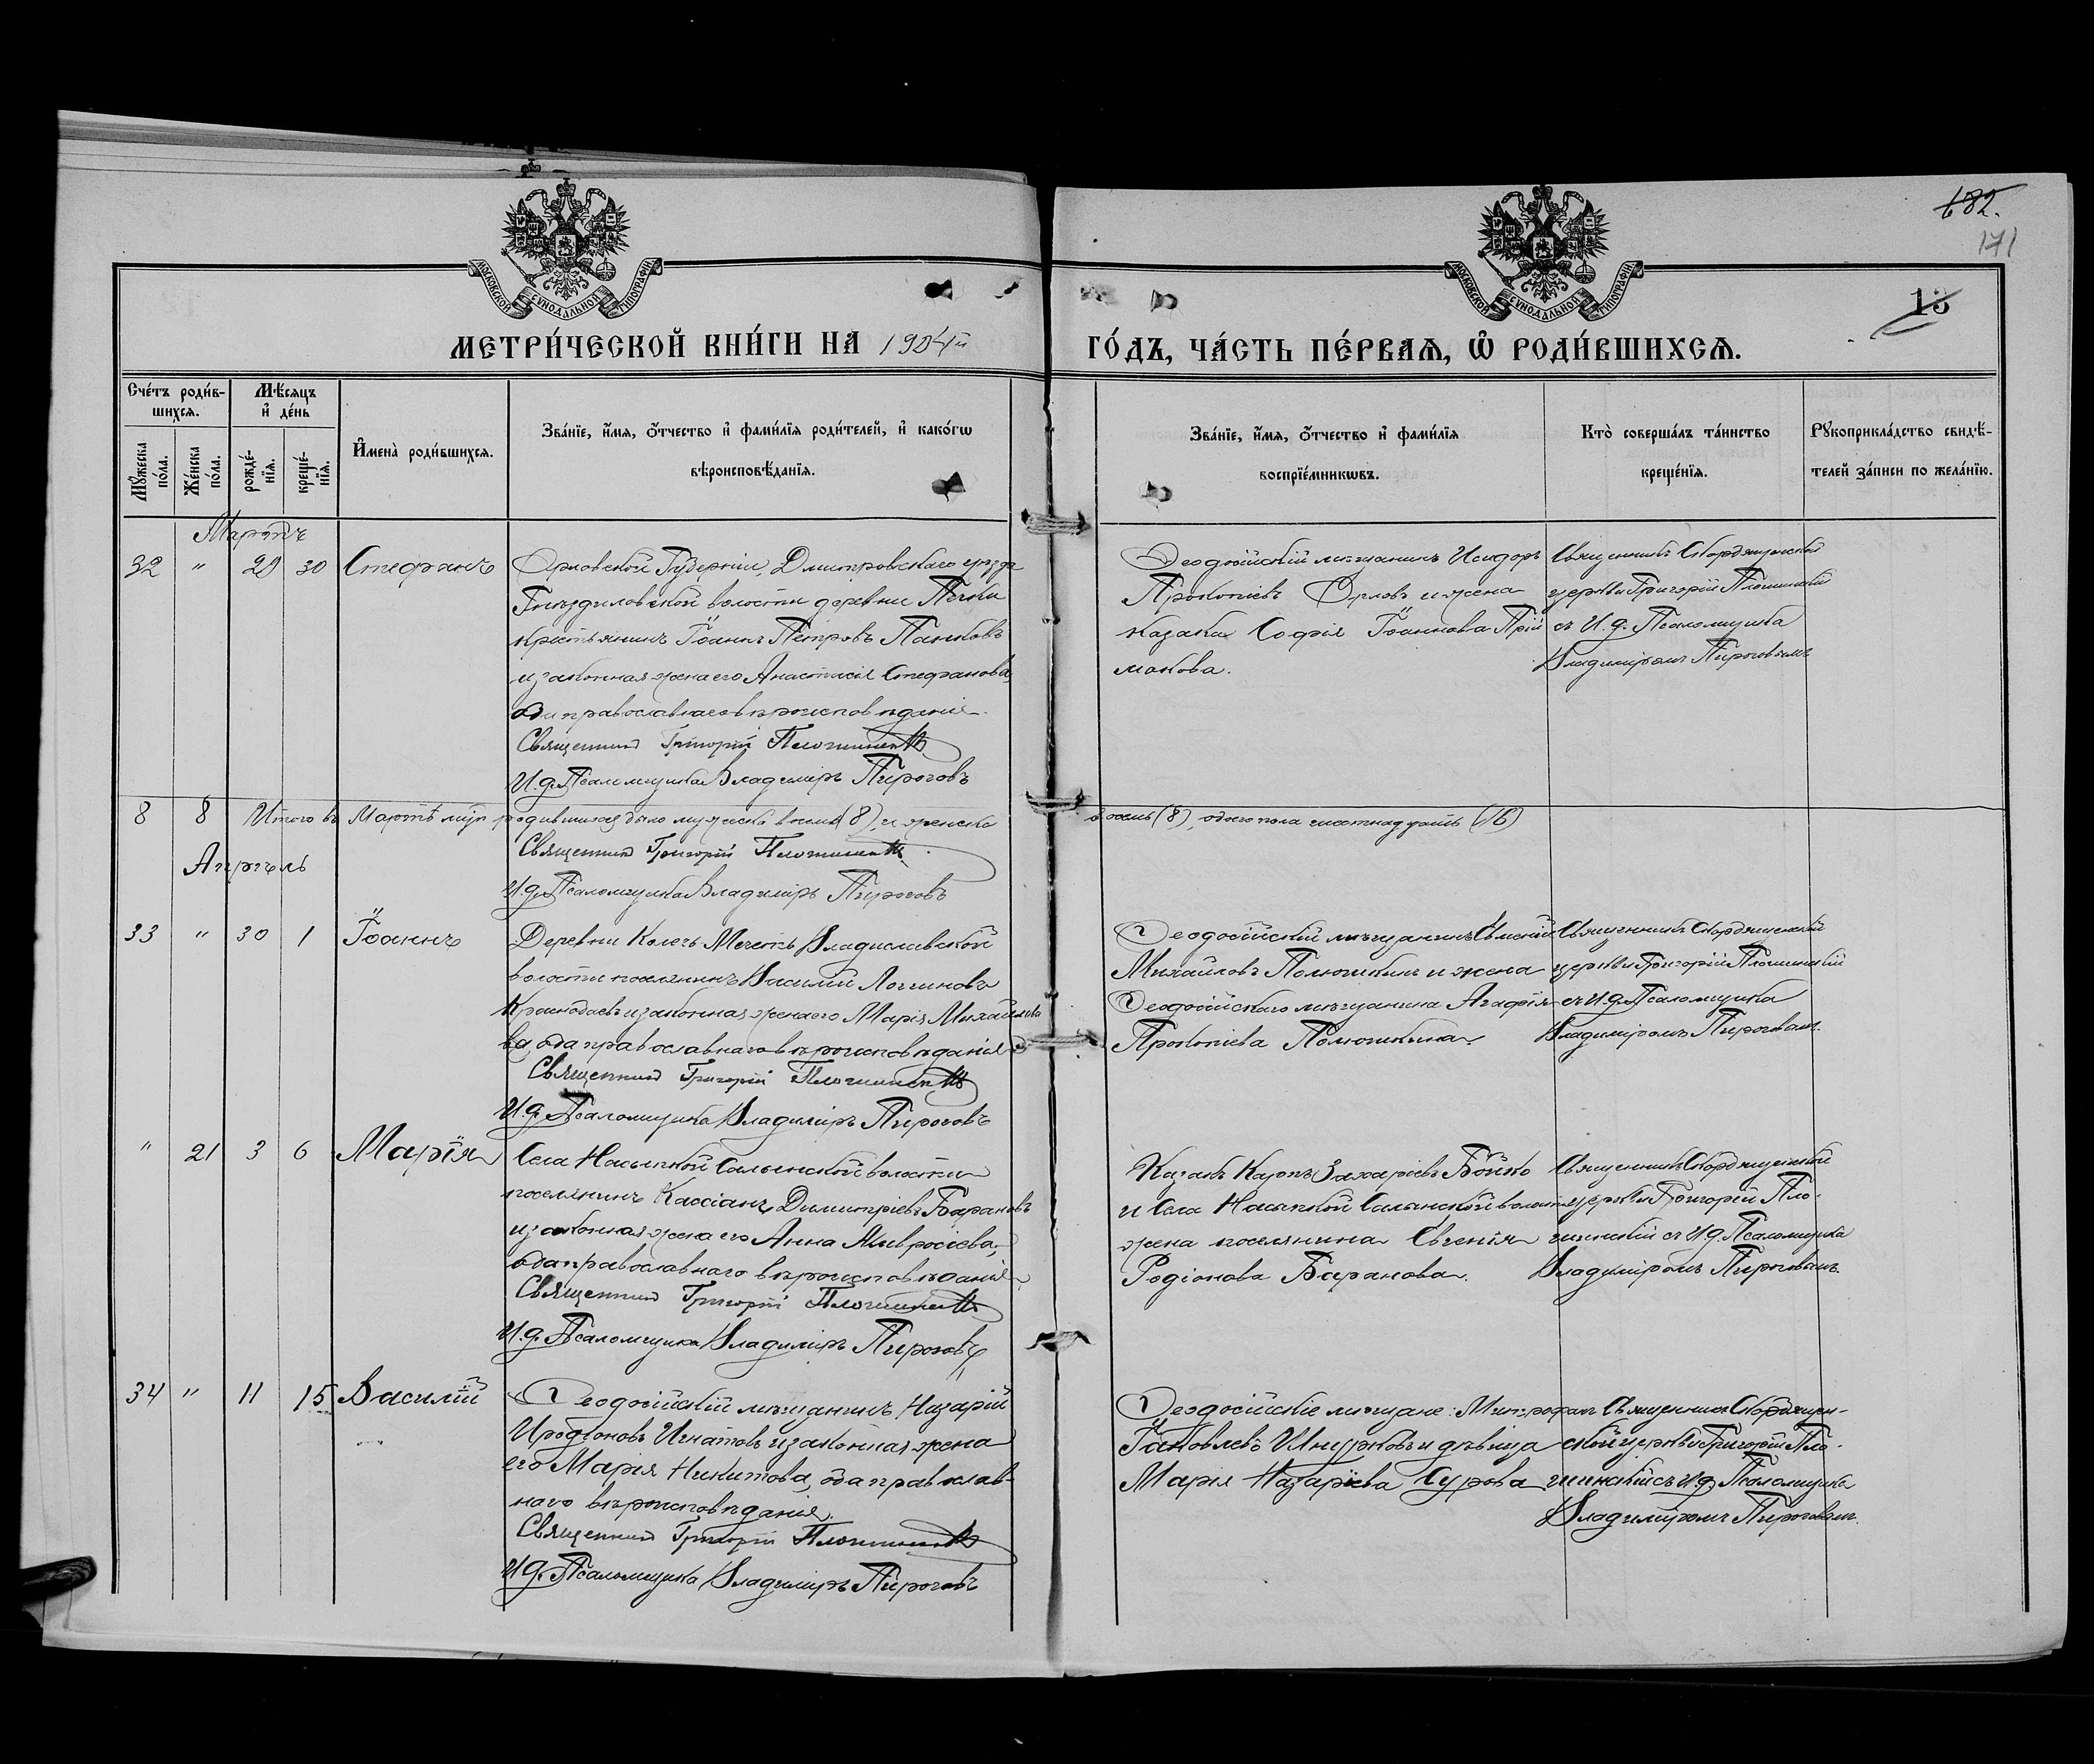 682.
171
13
МОСКОВСКОЙ СѴНОДАЛЬНОЙ ТИПОГРАФІИ
МОСКОВСКОЙ СѴНОДАЛЬНОЙ ТИПОГРАФІИ
МЕТРИ́ЧЕСКОЙ КНИ́ГИ НА 1904й
ГО́ДЪ, ЧА́СТЬ ПЕ́РВАЯ, Ѡ РОДИ́ВШИХСЯ.
Сче́тъ роди́в-
шихся.
Мѣ́сяцъ
и де́нь
Мꙋ́жеска
по́ла.
Же́нска
по́ла.
рожде́-
нїя.
креще́-
нїя.
Имена̀ роди́вшихся.
Зва́нїе, и́мя, о́тчество и фами́лїя роди́телей, и како́гѡ
вѣроисповѣ́данїя.
Зва́нїе, и́мя, о́тчество и фами́лїя
воспрїе́мникѡвъ.
Кто̀ соверша́лъ та́инство
креще́нїя.
Рꙋкоприкла́дство свидѣ́-
телей за́писи по жела́нїю.
Мартъ
32 " 29 30 Стефанъ
Орловской Губерніи, Дмитровскаго уѣзда
Гнѣздиловской волости деревни Печки
крестьянинъ Іоаннъ Петровъ Панковъ
и законная жена его Анастасія Стефанова,
оба православнаго вѣроисповѣданія.
Священникъ Григорій
И.д. Псаломщика Владиміръ Пироговъ
Ѳеодосійскій мѣщанинъ Исидоръ
Прокопіевъ Орловъ и жена
казака Софія Іоаннова Прій
макова.
Священникъ
церкви Григорій
съ И.д. Псаломщика
Владиміромъ Пироговымъ
8 8 Итого въ Мартѣ мцѣ родившихся было мужеска восемь (8), и женска
восемь (8), обоего пола шестнадцать (16)
Священникъ Григорій
И.д. Псаломщика Владиміръ Пироговъ
Апрѣль
33 " 30 1 Іоаннъ
Деревни Колечь Мечеть Владиславской
волости поселянинъ Василій Логгиновъ
и законная жена его Марія Михайло
ва, оба православнаго вѣроисповѣданія
Священникъ Григорій
И.д. Псаломщика Владиміръ Пироговъ
Ѳеодосійскій мѣщанинъ
Михайловъ и жена
Ѳеодосійскаго мѣщанина Агафія
Прокопіева
Священникъ
церкви Григорій
съ И.д. Псаломщика
Владиміромъ Пироговымъ.
" 21 3 6 Марія
Села Насыпкой Салынской волости
поселянинъ Кассіанъ Димитріевъ Барановъ
и законная жена его Анна Амвросіева,
оба православнаго вѣроисповѣданія
Священникъ Григорій
И.д. Псаломщика Владиміръ Пироговъ
Казакъ Карпъ Захаріевъ Бойко
и Села Насыпкой Салынской волости
жена поселянина Евгенія
Родіонова Баранова.
Священникъ
церкви Григорій
съ И.д. Псаломщика
Владиміромъ Пироговымъ.
34 " 11 15 Василій
Ѳеодосійскій мѣщанинъ Назарій
Иродіоновъ Игнатовъ и законная жена
его Марія Никитова, оба православ-
наго вѣроисповѣданія.
Священникъ Григорій
И.д. Псаломщика Владиміръ Пироговъ
Ѳеодосійскіе мѣщане: Митрофанъ
Іаковлевъ и дѣвица
Марія Назаріева Сурова
Священникъ
ской церкви Григорій
съ И.д. Псаломщика
Владиміромъ Пироговымъ.